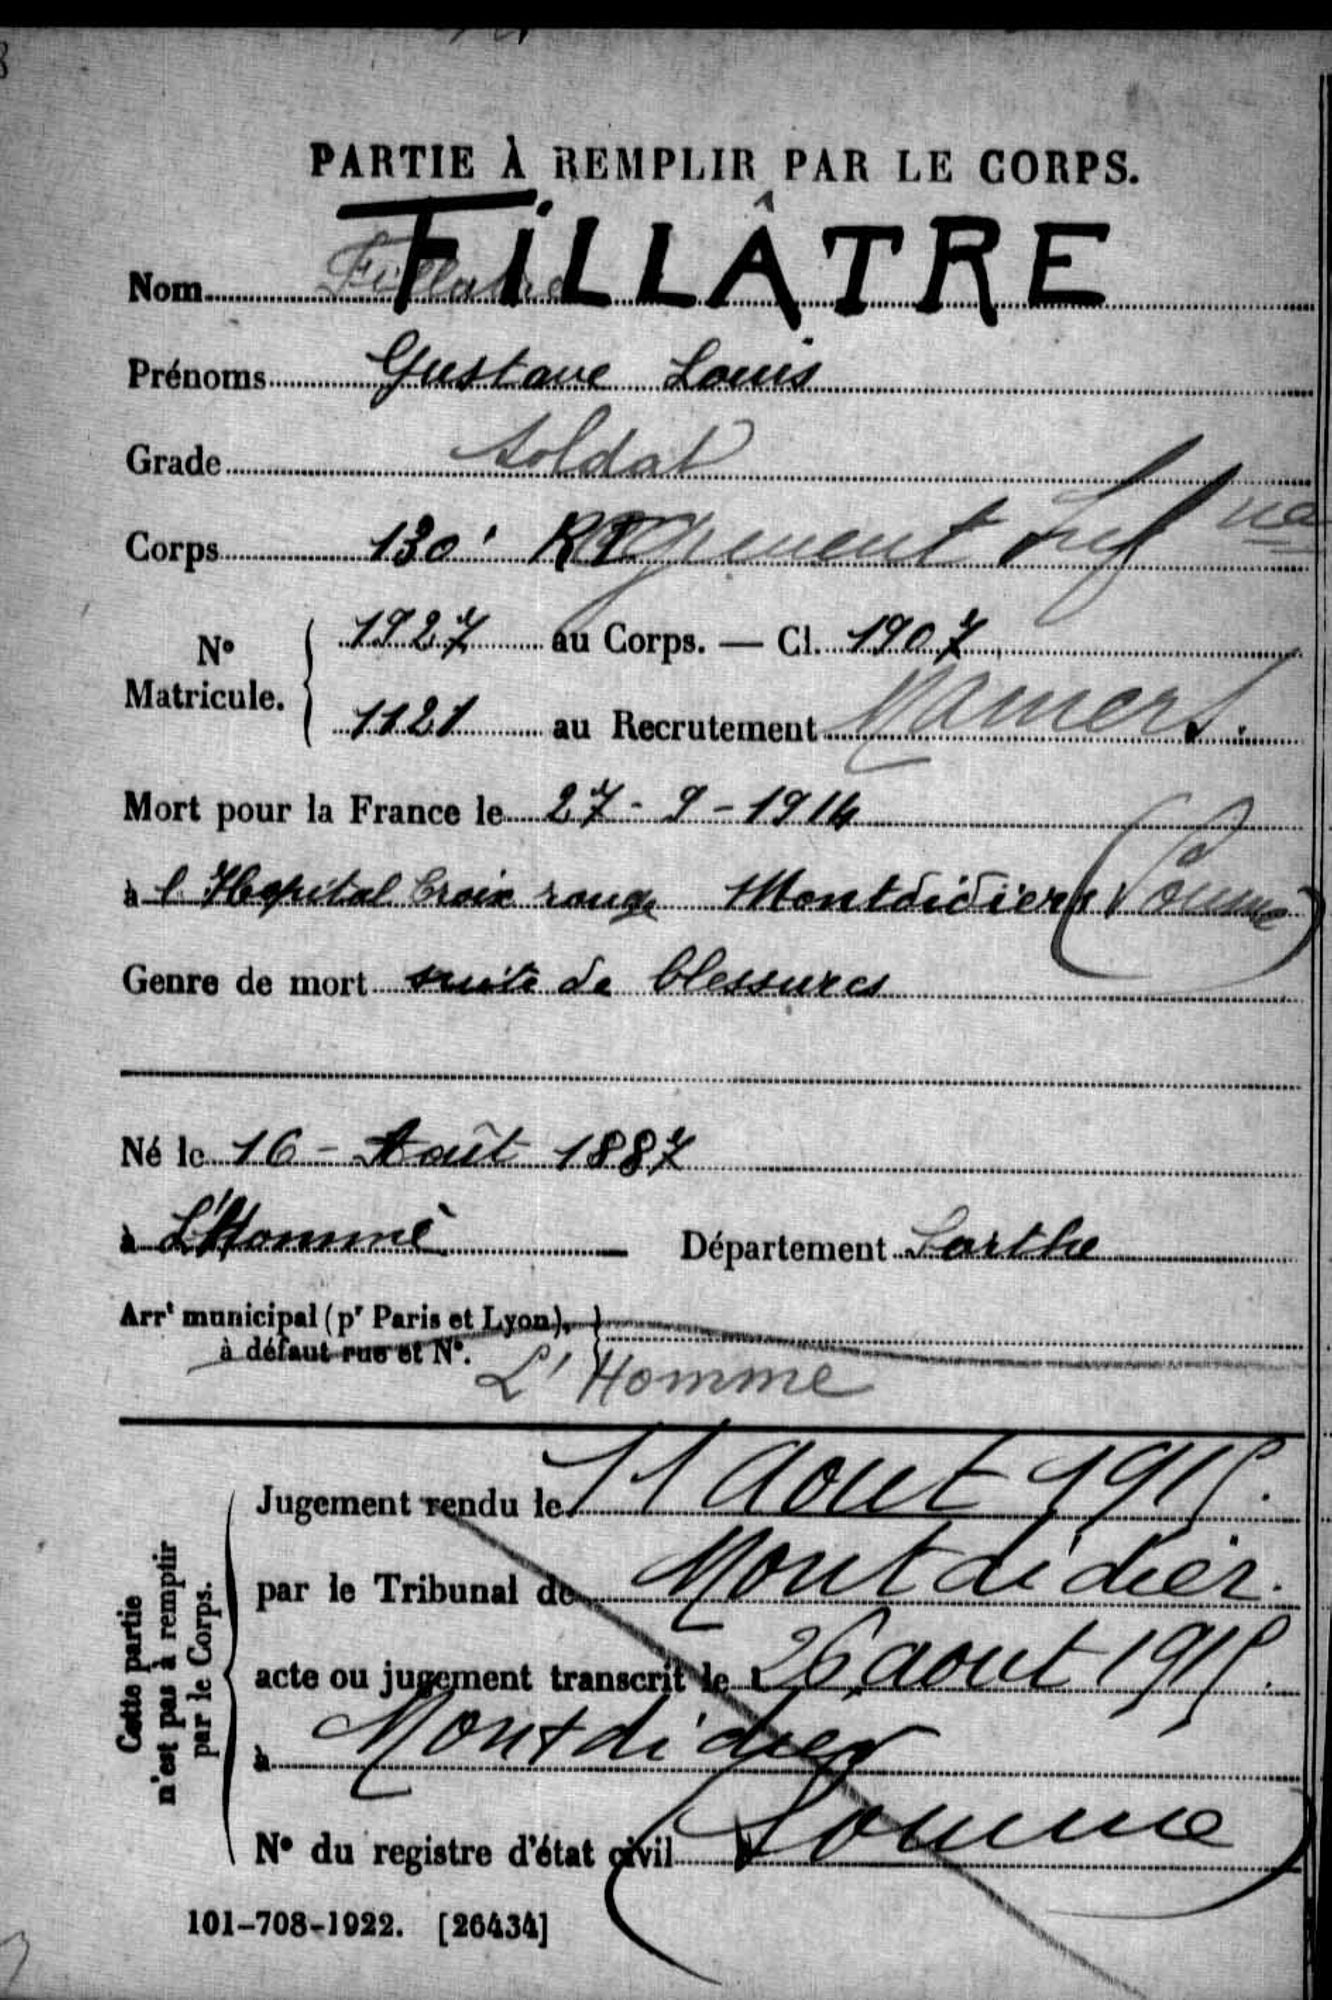 PARTIE À REMPLIR PAR LE CORPS.
Nom Fillatre FiLLÂTRE
Prénoms Gustave Louis
Grade Soldat
Corps 130e RI Régiment Inf ie
No Matricule. 1927 au Corps. — Cl. 1907
1121 au Recrutement Mamers.
Mort pour la France le 27 - 9 - 1914
à l'Hopital Croix rouge Montdidiers (Somme)
Genre de mort suite de blessures
Né le 16 - Août 1887
à L'Hommé Département Sarthe
Arrt municipal (pr Paris et Lyon),
à défaut rue et No.
L'Homme
Cette partie
n'est pas à remplir
par le Corps.
Jugement rendu le 11 Aout 1915.
par le Tribunal de Montdidier.
acte ou jugement transcrit le 26 aout 1915.
à Montdidier
No du registre d'état civil (Somme)
101-708-1922. [26434]